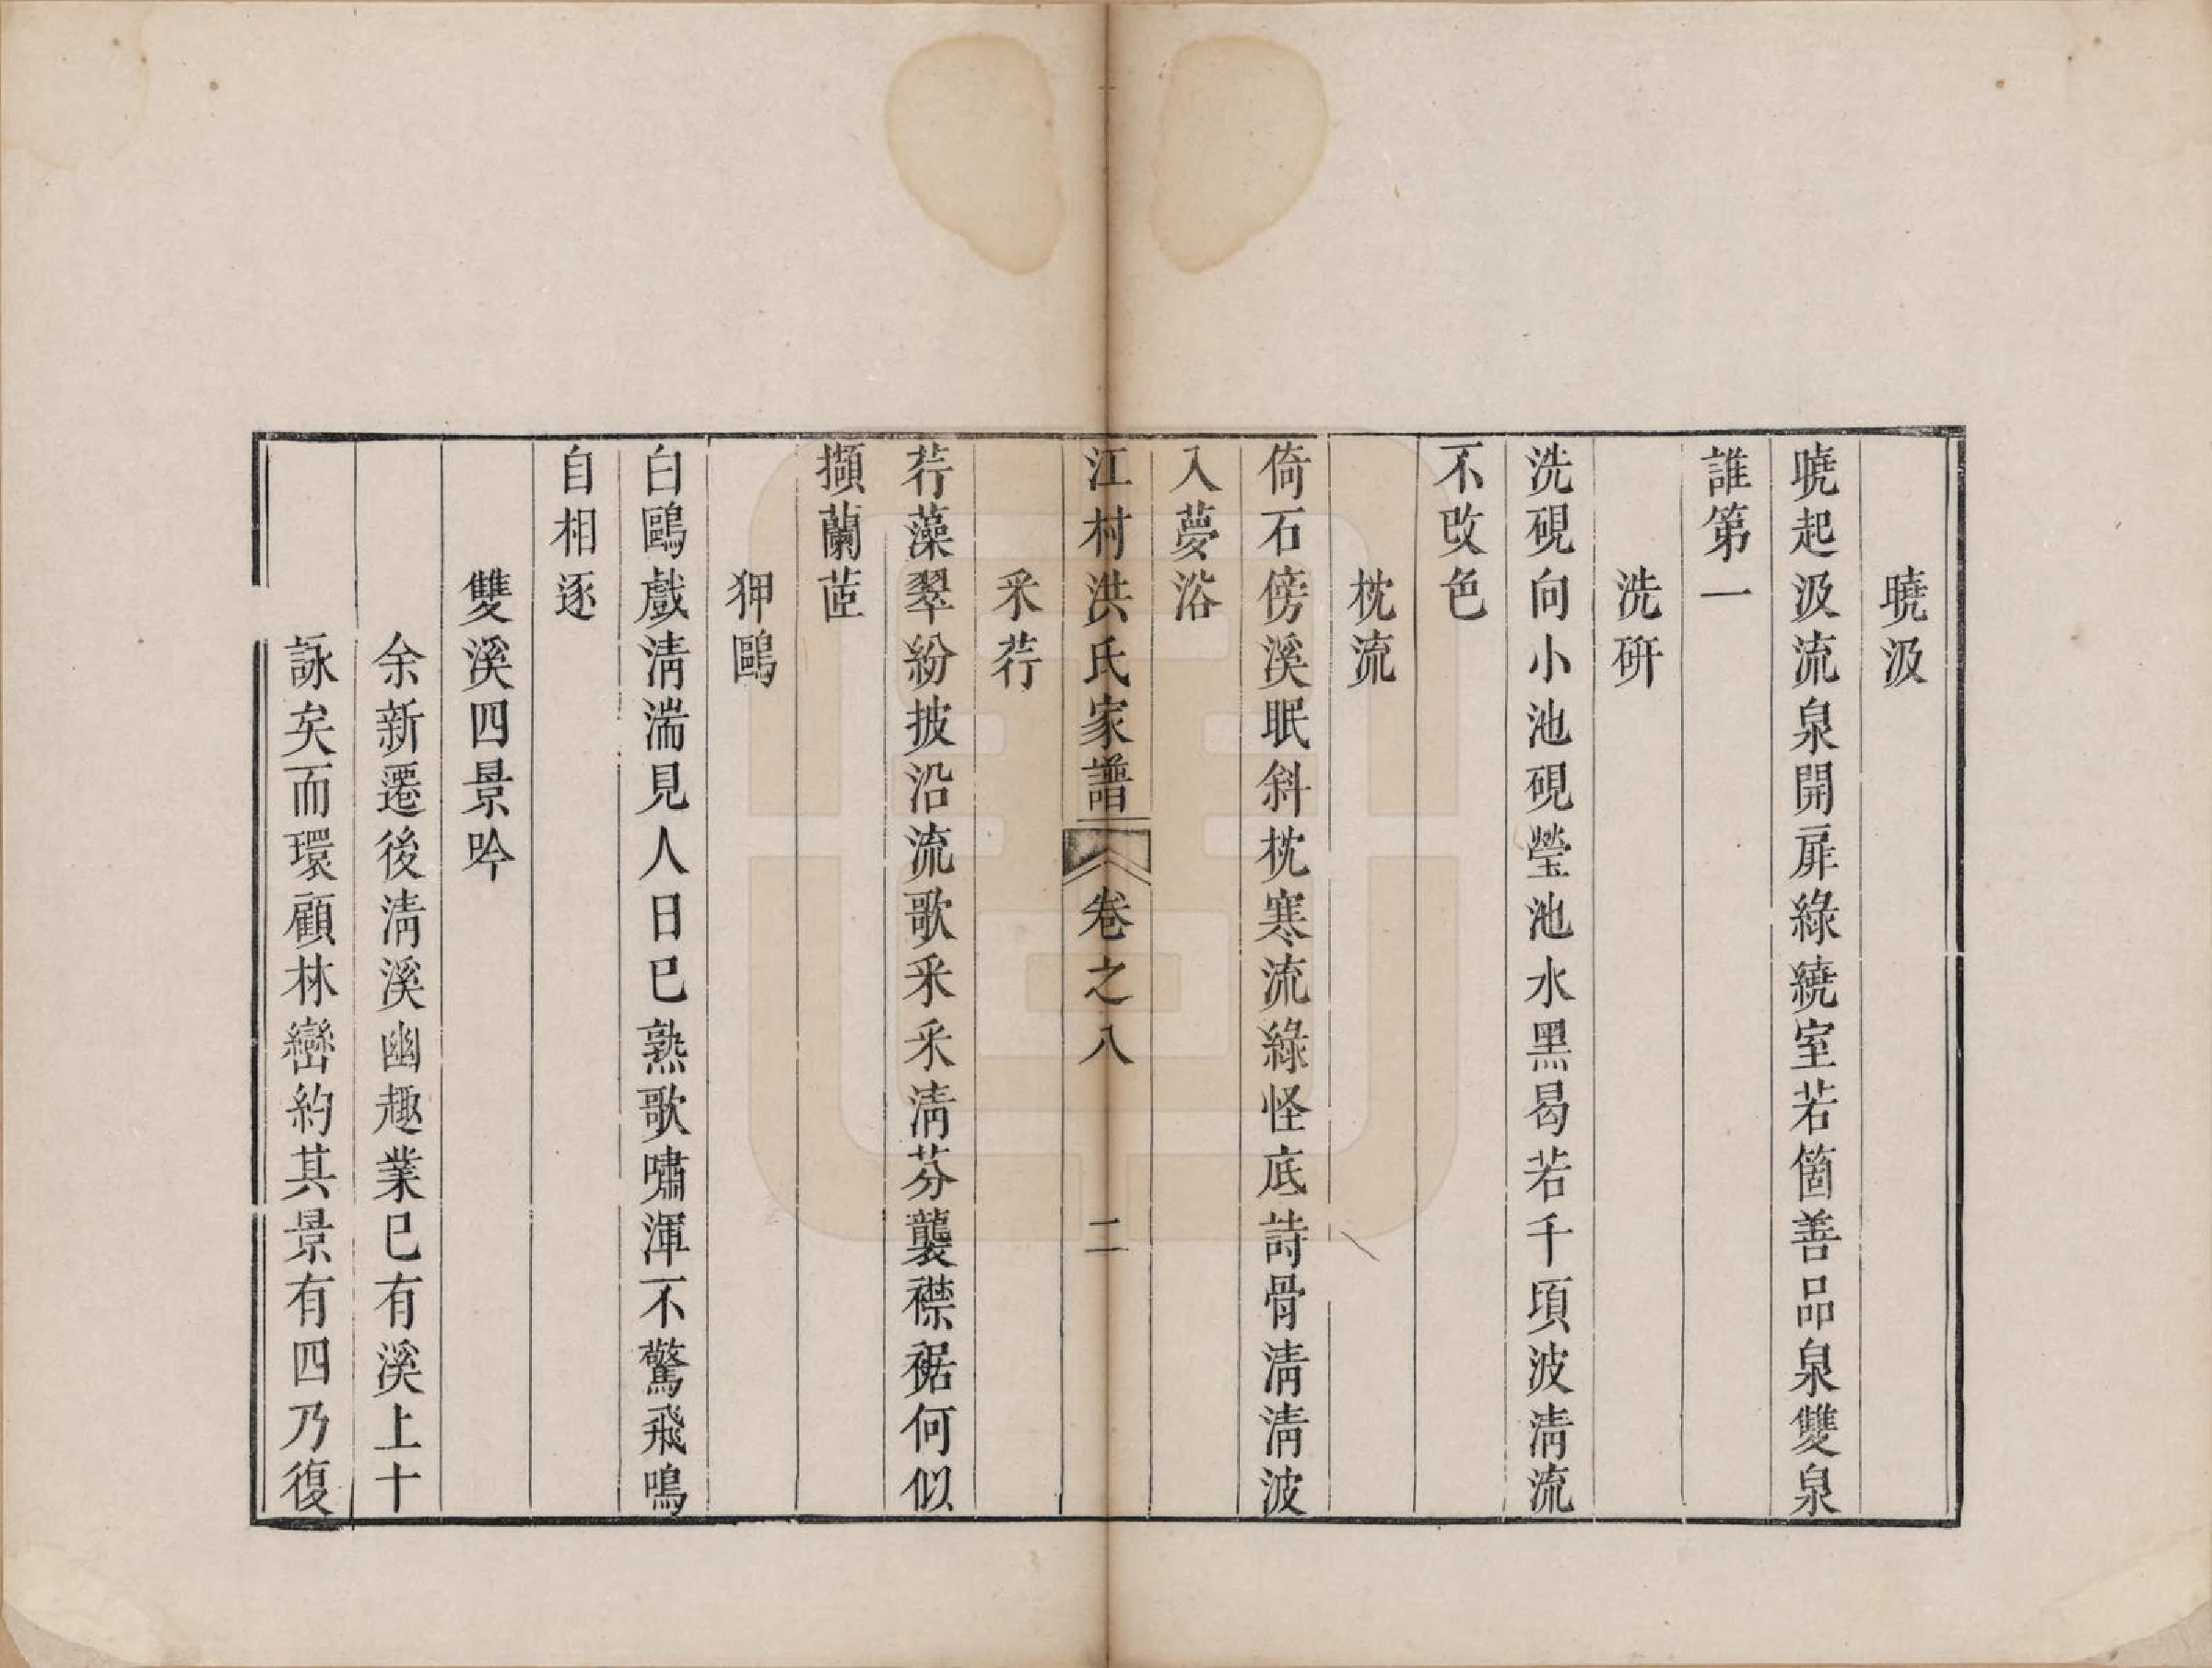 曉汲
曉起汲流泉開扉綠繞室若箇善品泉雙泉
誰第一
洗硏
洗硯向小池硯瑩池水黑曷若千頃波淸流
不改色
枕流
倚石傍溪眠斜枕寒流綠怪底詩骨淸淸波
入夢浴
江村洪氏家譜 卷之八 二
采荇
荇藻翠紛披沿流歌采采淸芬襲襟裾何似
擷蘭茝
狎鷗
白鷗戲淸湍見人日已熟歌嘯渾不驚飛鳴
自相逐
雙溪四景吟
余新遷後淸溪幽趣業已有溪上十
詠矣而環顧林巒約其景有四乃復